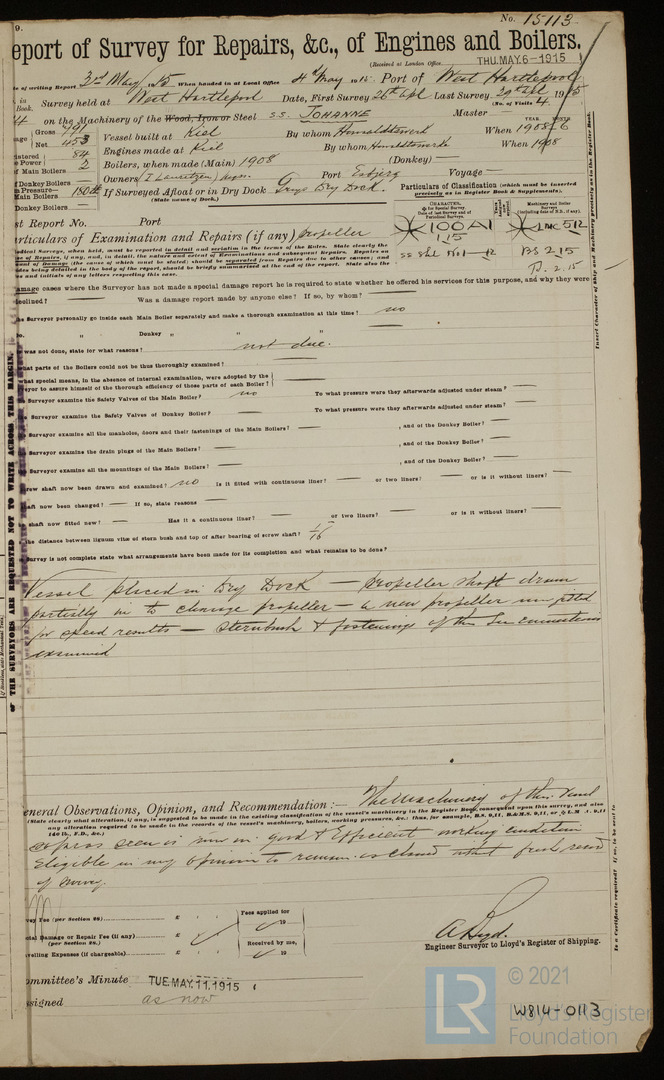 9.
No. 15113
eport of Survey for Repairs, &c., of Engines and Boilers.
(Received at London Office THU. MAY. 6 - 1915
e of writing Report 3rd May 1915 When handed in at Local Office 4th May 1915 Port of West Hartlepool
in Book. Survey held at West Hartlepool Date, First Survey 26th Apl Last Survey 29th Apl 1915
(No. of Visits 4.
on the Machinery of the Wood, Iron or Steel S.S. JOHANNE Master
Gross 791 Vessel built at Kiel By whom Howaldtswerk When 1908-6
YEAR. MONTH.
Net 453 Engines made at Kiel By whom Howaldtswerke When 1908
istered Power 84
of Main Boilers 2 Boilers, when made (Main) 1908 (Donkey)
Donkey Boilers Owners J Lauritzen Port Esbjerg Voyage
m Pressure— Main Boilers 180 lb If Surveyed Afloat or in Dry Dock Grays Dry Dock.
Donkey Boilers (State name of Dock.)
Particulars of Classification (which must be inserted
precisely as in Register Book & Supplements).
CHARACTER, for Special Survey. Date of last Survey and of Periodical Surveys.
Machinery and Boiler Surveys (including date of N.B., if any).
100 A1 LMC 5.12
1.15 BS 2.15
SS No 1 - 12
2.15
st Report No. Port
articulars of Examination and Repairs (if any) propeller
was a damage report made by anyone else? If so, by whom?
amage cases where the Surveyor has not made a special damage report he is required to state whether he offered his services for this purpose, and why they were
declined? Was a damage report made by anyone else? If so, by whom?
he Surveyor personally go inside each Main Boiler separately and make a thorough examination at this time? no
o. " Donkey " " "
was not done, state for what reasons? not due.
hat parts of the Boilers could not be thus thoroughly examined?
what special means, in the absence of internal examination, were adopted by the
eyor to assure himself of the thorough efficiency of those parts of each Boiler?
e Surveyor examine the Safety Valves of the Main Boiler? no To what pressure were they afterwards adjusted under steam?
e Surveyor examine the Safety Valves of Donkey Boiler? To what pressure were they afterwards adjusted under steam?
e Surveyor examine all the manholes, doors and their fastenings of the Main Boilers? , and of the Donkey Boiler?
e Surveyor examine the drain plugs of the Main Boilers? , and of the Donkey Boiler?
e Surveyor examine all the mountings of the Main Boilers? , and of the Donkey Boiler?
rew shaft now been drawn and examined? no Is it fitted with continuous liner? or two liners? or is it without liners?
haft now been changed? If so, state reasons
shaft now fitted new? Has it a continuous liner? or two liners? or is it without liners?
the distance between lignum vitæ of stern bush and top of after bearing of screw shaft? 1/16
Survey is not complete state what arrangements have been made for its completion and what remains to be done?
Vessel placed in Dry Dock — propeller shaft drawn
partially in to change propeller — a new propeller now fitted
for speed results — sternbush & fastenings of the Sea Connections
examined
eneral Observations, Opinion, and Recommendation :— The Machinery of this Vessel
(State clearly what alteration, if any, is suggested to be made in the existing classification of the vessel's machinery in the Register Book, consequent upon this survey, and also
any alteration required to be made in the records of the vessel's machinery, boilers, working pressures, &c.: thus, for example, B.S. 9,11, B.&M.S. 9,11, or L.M.C. 9,11
140 lb., F.D., &c.)
so far as seen is now in good & efficient working condition
Eligible in my opinion to remain as classed without fresh record
of survey.
vey Fee (per Section 28) £ Fees applied for
19
cial Damage or Repair Fee (if any) £
(per Section 28.) Received by me,
velling Expenses (if chargeable) £ 19
A Boyd.
Engineer Surveyor to Lloyd's Register of Shipping.
ommittee's Minute TUE. MAY. 11. 1915
ssigned as now
OF THE SURVEYORS ARE REQUESTED NOT TO WRITE ACROSS THIS MARGIN.
Insert Character of Ship and Machinery precisely as in the Register Book.
Is a Certificate required? If so, to be sent to
LR © 2021
Lloyd's Register
Foundation
W814-0113